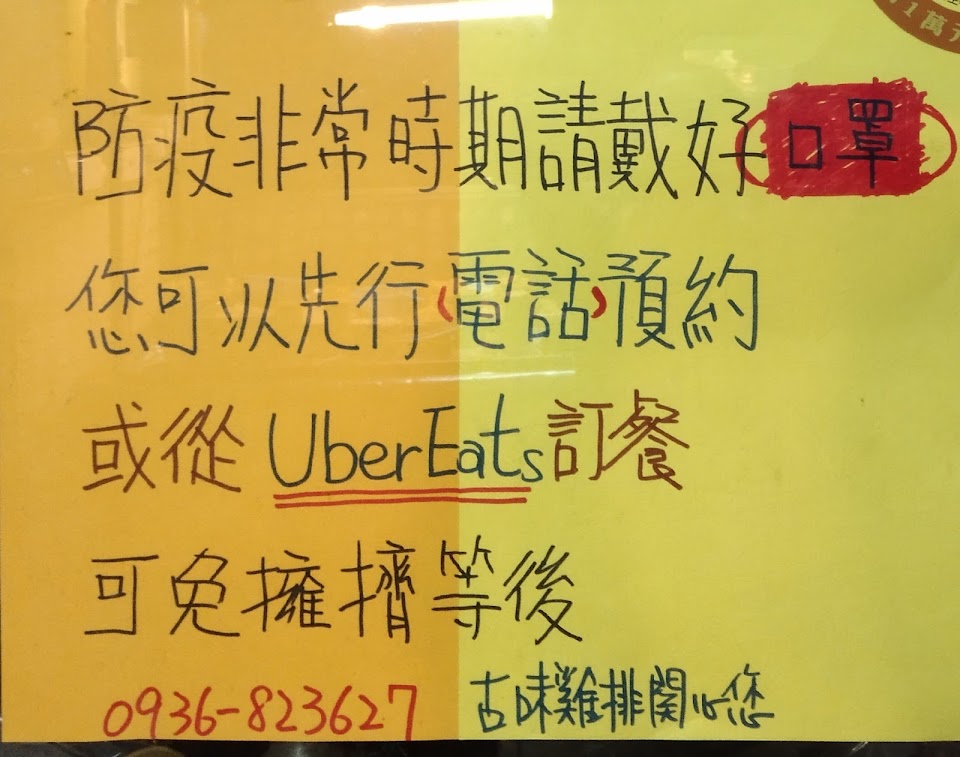 1萬元
防疫非常時期請戴好口罩
您可以先行(電話)預約
或從 UberEats 訂餐
可免擁擠等後
0936-823627 古味雞排關心您